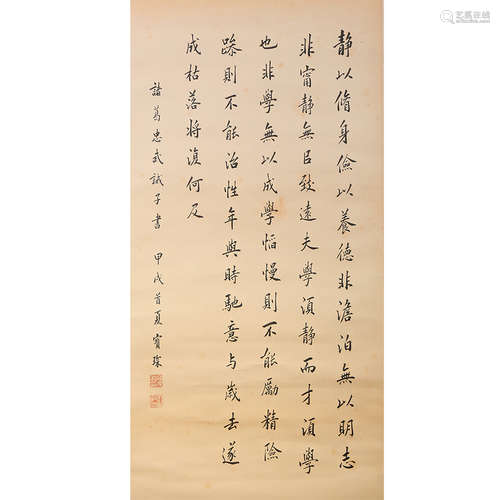 靜以脩身儉以養德非澹泊無以明志
非甯靜無㠯致遠夫學須靜而才須學
也非學無以成學慆慢則不能勵精險
躁則不能治性年與時馳意与歲去遂
成枯落将復何及
諸葛忠武誡子書 甲戌首夏寶琛